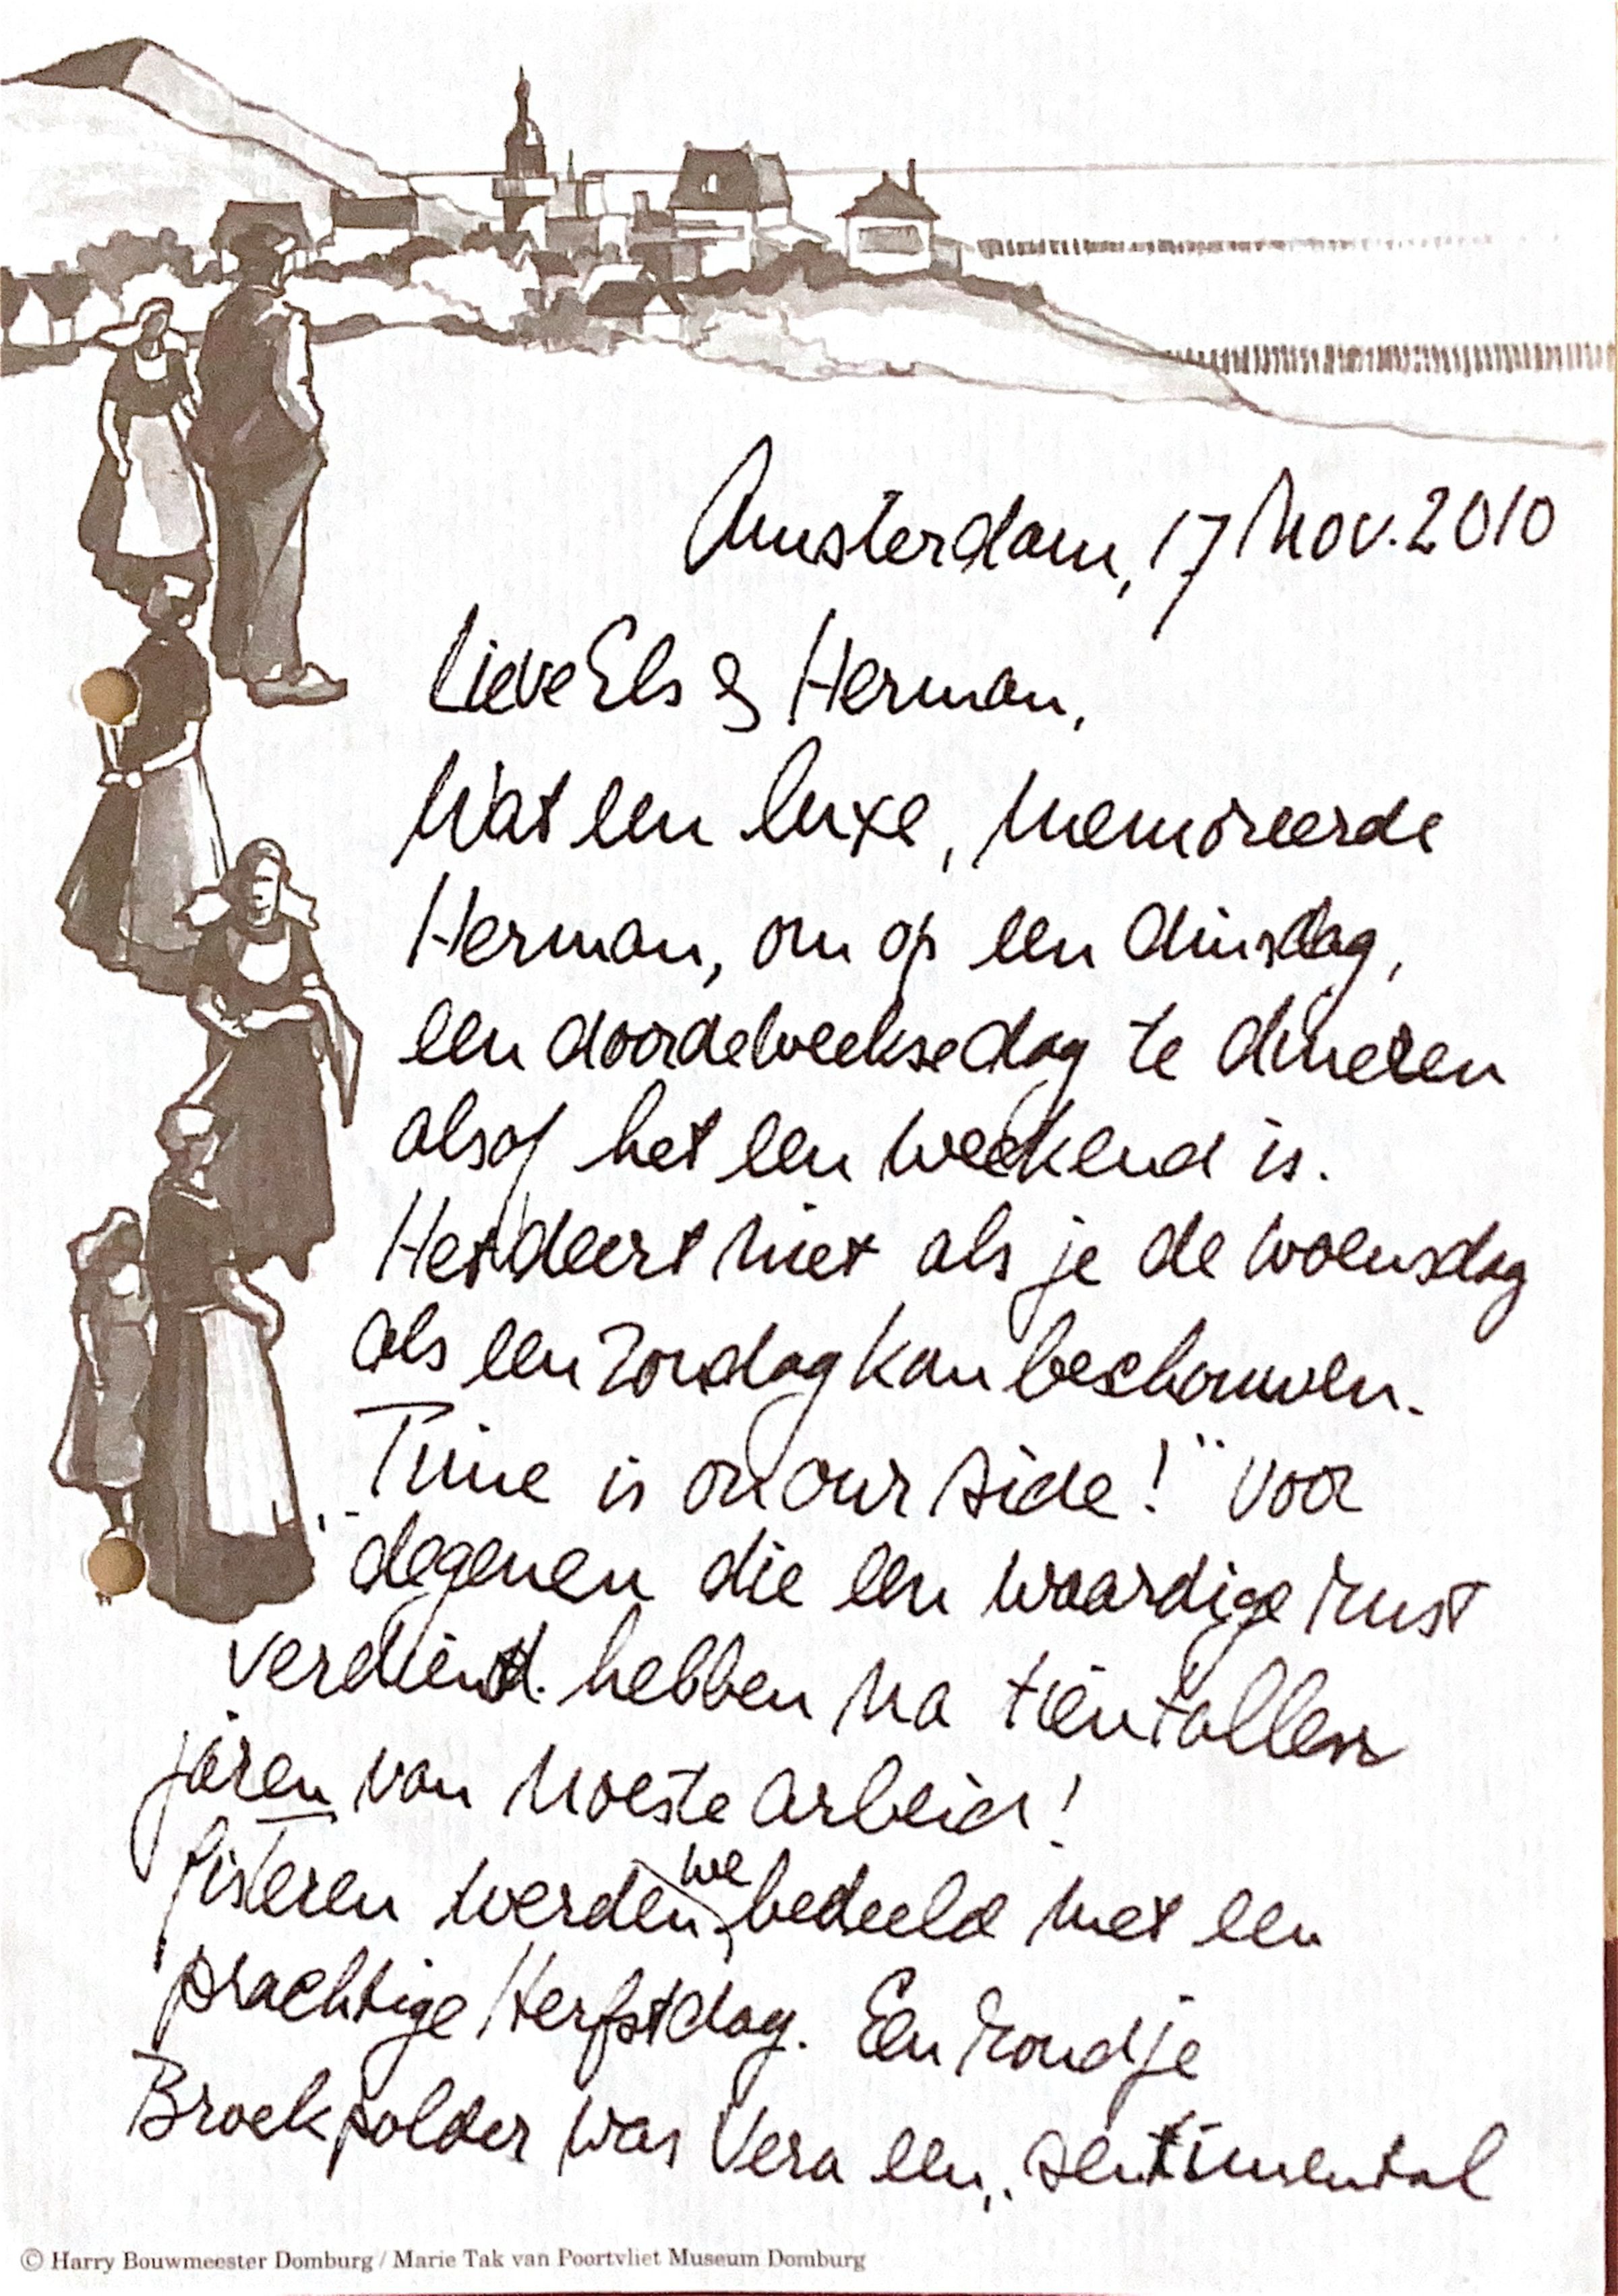 Amsterdam, 17 Nov. 2010
Lieve Els & Herman,
Wat een luxe, memoreerde
Herman, om op een dinsdag,
een doordeweekse dag te dineren
alsof het een weekend is.
Het deert niet als je de woensdag
als een zondag kan beschouwen.
„Time is on our side!” voor
degenen die een waardige rust
verdiend hebben na tientallen
jaren van noeste arbeid!
Gisteren werden we bedeeld met een
prachtige Herfstdag. Een rondje
Broekpolder was Vera een „sentimental
© Harry Bouwmeester Domburg / Marie Tak van Poortvliet Museum Domburg